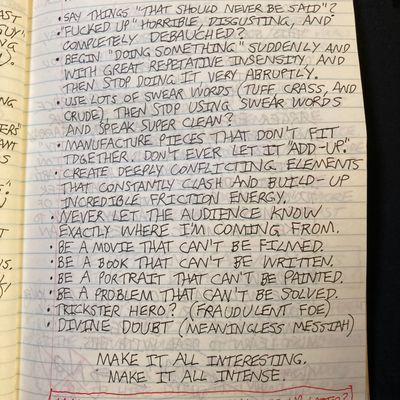 • SAY THINGS "THAT SHOULD NEVER BE SAID"?
• "FUCKED UP" HORRIBLE, DISGUSTING, AND
COMPLETELY DEBAUCHED?
• BEGIN "DOING SOMETHING" SUDDENLY AND
WITH GREAT REPETATIVE INSENSITY, AND
THEN STOP DOING IT VERY ABRUPTLY.
• USE LOTS OF SWEAR WORDS (TUFF, CRASS, AND
CRUDE), THEN STOP USING SWEAR WORDS
AND SPEAK SUPER CLEAN?
• MANUFACTURE PIECES THAT DON'T FIT
TOGETHER. DON'T EVER LET IT "ADD-UP."
• CREATE DEEPLY CONFLICTING ELEMENTS
THAT CONSTANTLY CLASH AND BUILD-UP
INCREDIBLE FRICTION ENERGY.
• NEVER LET THE AUDIENCE KNOW
EXACTLY WHERE I'M COMING FROM.
• BE A MOVIE THAT CAN'T BE FILMED.
• BE A BOOK THAT CAN'T BE WRITTEN.
• BE A PORTRAIT THAT CAN'T BE PAINTED.
• BE A PROBLEM THAT CAN'T BE SOLVED.
• TRICKSTER HERO? (FRAUDULENT FOE)
• DIVINE DOUBT (MEANINGLESS MESSIAH)
MAKE IT ALL INTERESTING.
MAKE IT ALL INTENSE.